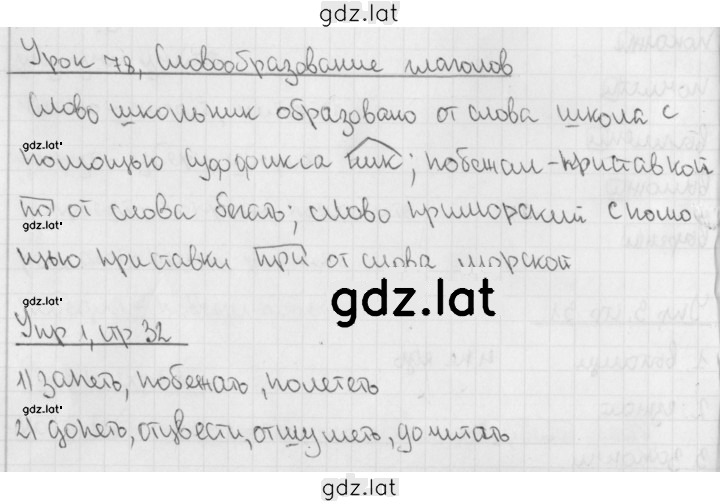 gdz.lat
Урок 78, Словообразование глаголов
Слово школьник образовано от слова школа с
gdz.lat
помощью суффикса ник; побежал-приставкой
gdz.lat
по от слова бегать; слово приморский с помо
щью приставки при от слова морской
gdz.lat
gdz.lat
Упр 1, стр 32
gdz.lat
1) запеть, побежать, полететь
gdz.lat
2) допеть, отцвести, отшуметь, дочитать
gdz.lat